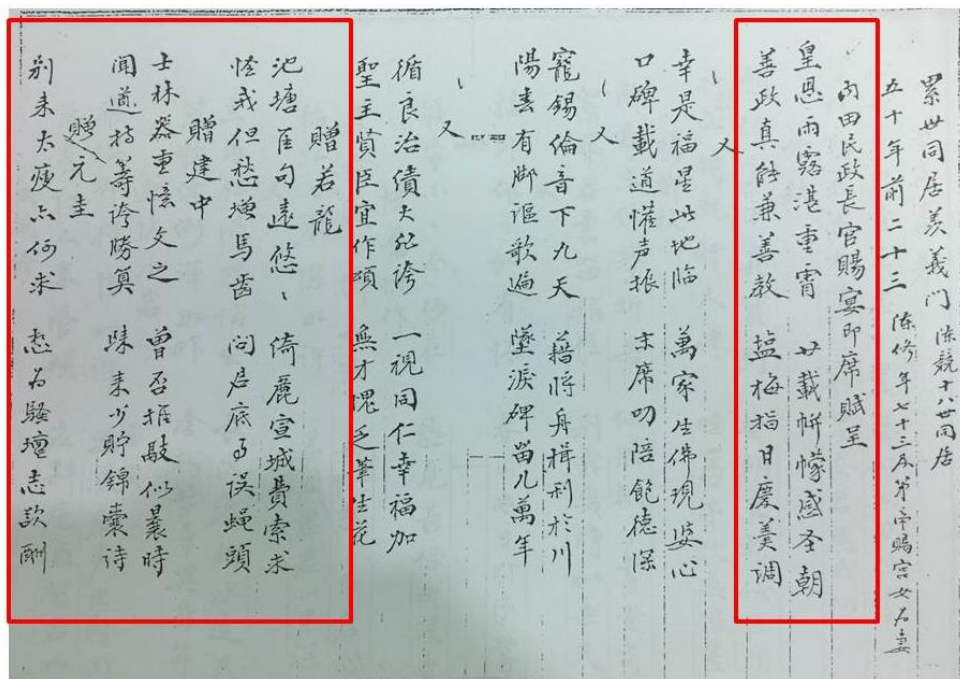 累世同居羨義门 陈競十八世同居
五十年前二十三 陈修年七十三及第帝賜宫女为妻
内田民政長官賜宴即席賦呈
皇恩雨露湛重霄 廿載帡幪感圣朝
善政真能兼善教 塩梅指日慶羹調
又
幸是福星此地臨 萬家生佛現婆心
口碑載道懽声振 末席叨陪飽德深
又
寵錫倫音下九天 藉將舟楫利於川
陽春有脚謳歌遍 墜淚碑留几萬年
又
循良治績大紀誇 一視同仁幸福加
聖主賢臣宜作頌 無才愧乏筆生花
贈若龍
池塘佳句遠悠、 倚麗宣城費索求
怪我但愁增馬齒 问君底事误蝇頭
贈建中
士林器重憶文之 曾否推敲似曩時
闻道持筹誇勝算 歸来少貯錦囊诗
贈元圭
别来太瘦亦何求 愁为騷壇志欤酬